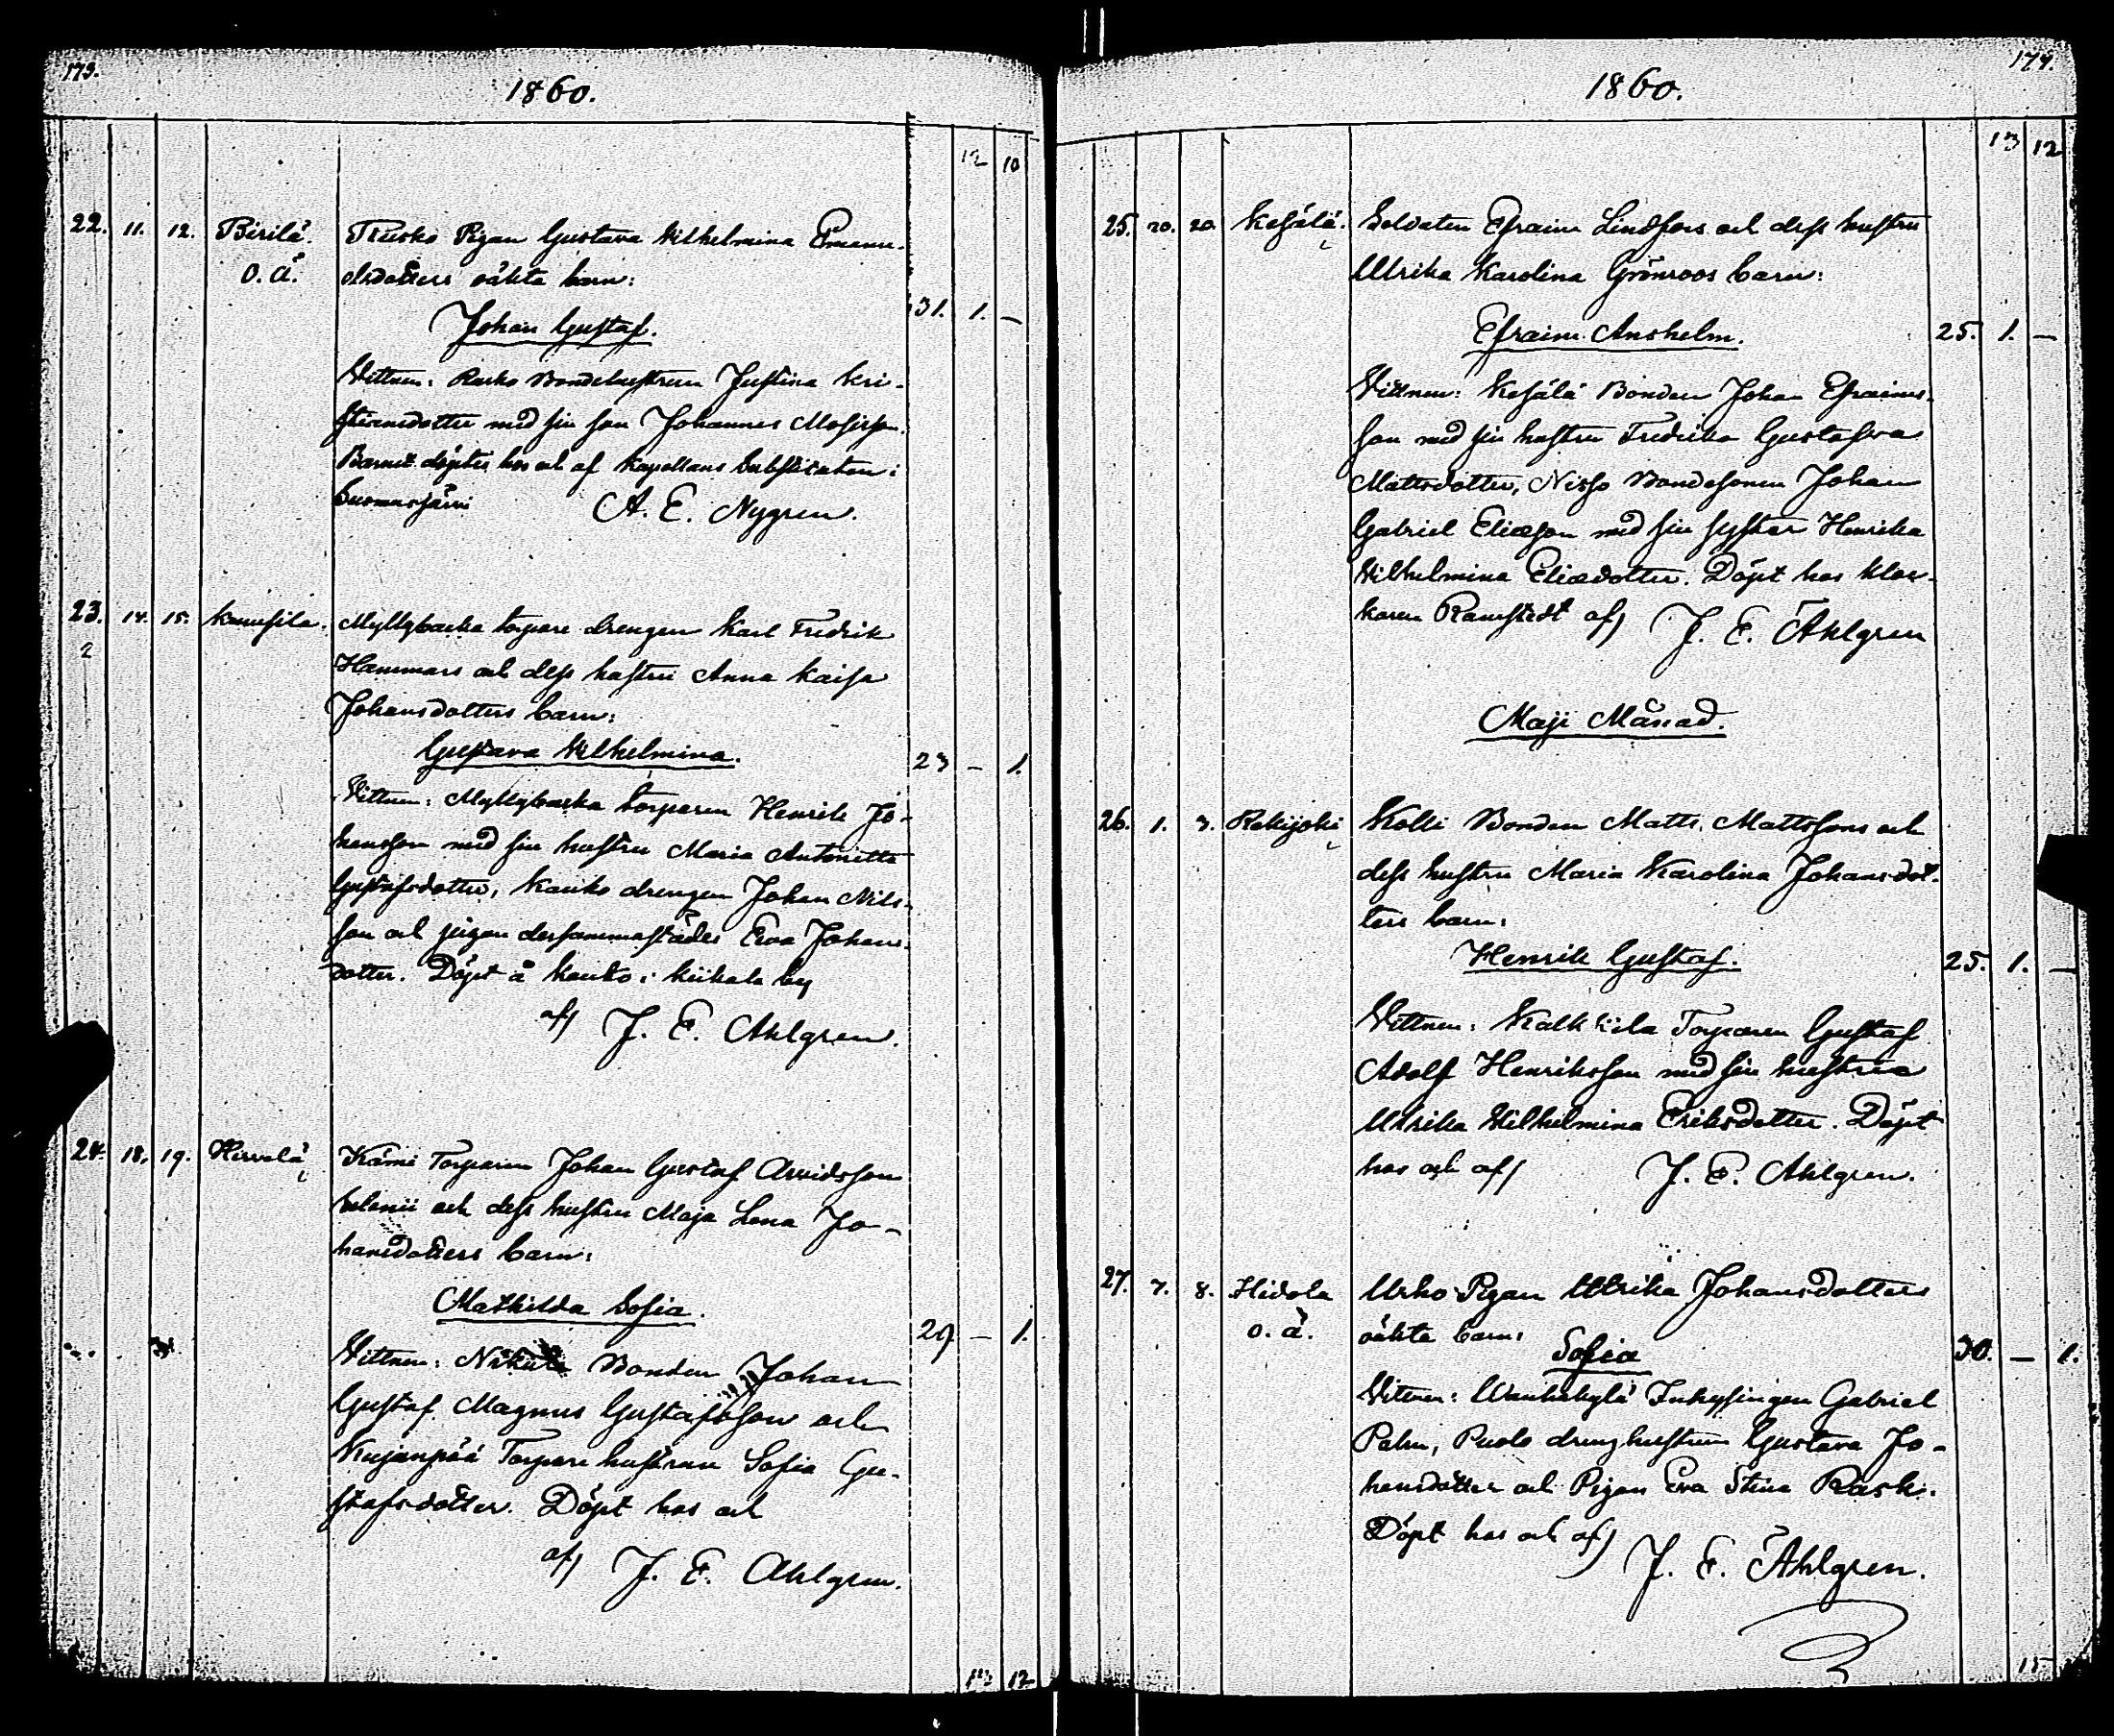 173.
1860.
12 10
22. 11. 12. Pirilä. Trusko Pigan Gustava Wilhelmina Emanu-
o. ä. elsdotters oäkta barn:
Johan Gustaf. 31. 1. —
Vittnen: Rusko Bondehustrun Justina Kri-
stiansdotter med sin son Johannes Mosisson.
Barnet döptes hos och af Kapellans Substituten i
Suomusjärvi A. E. Nygren.
23. 14. 15. Myllybacka torpare drengen Karl Fredrik
2 Hammars och dess hustru Anna Kaisa
Johansdotters barn:
Gustava Wilhelmina. 23 — 1.
Vittnen: Myllybacka torparen Henrik Jo-
hansson med sin hustru Maria Antonietta
Gustafsdotter, Kauko drengen Johan Nils-
son och pigan dersammastädes Eva Johans-
dotter. Döpt å Kauko i Kiikala by
af J. E. Ahlgren.
24. 18. 19. Hirvelä Kämi Torparen Johan Gustaf Arvidsson
och dess hustru Maja Lena Jo-
hansdotters barn:
Mathilda Sofia. 29 — 1.
Vittnen: Bonden Johan
Gustaf Magnus Gustafsson och
Kujanpää Torpare hustrun Sofia Gu-
stafsdotter. Döpt hos och
af J. E. Ahlgren.
13 12
174.
1860.
13 12
25. 20. 20. Kesälä. Soldaten Efraim Lindfors och dess hustru
Ulrika Karolina Grönroos barn:
Efraim Anshelm. 25. 1. —
Vittnen: Kesälä Bonden Johan Efraims-
son med sin hustru Fredrika Gustafva
Mattsdotter, Nisso Bondesonen Johan
Gabriel Eliæson med sin syster Henrika
Wilhelmina Eliædotter. Döpt hos kloc-
karen Ramstedt af J. E. Åhlgren
Maji Månad.
26. 1. 3. Rekijoki Kolli Bonden Matts Mattssons och
dess hustru Maria Karolina Johansdot-
ters barn:
Henrik Gustaf. 25. 1. —
Vittnen: Torparen Gustaf
Adolf Henriksson med sin hustru
Ulrika Wilhelmina Eriksdotter. Döpt
hos och af J. E. Ahlgren.
27. 7. 8. Hidola Urho Pigan Ulrika Johansdotters
o. ä. oäkta barn:
Sofia 30. — 1.
Vittnen: Wanhakylä Inhysingen Gabriel
Palm, Puolo drenghustrun Gustava Jo-
hansdotter och Pigan Eva Stina Rask.
Döpt hos och af J. E. Åhlgren.
15